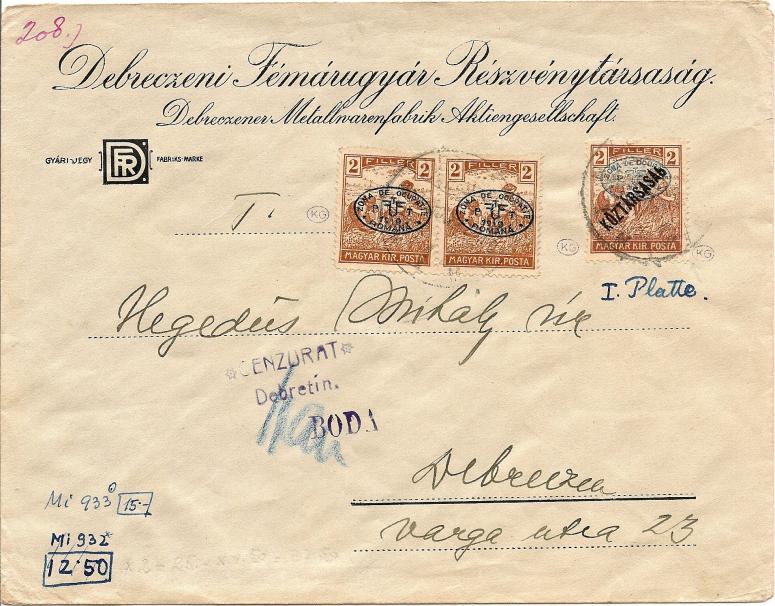 208.)
Debreczeni Fémárugyár Részvénytársaság.
Debreczener Metallwarenfabrik Aktiengesellschaft.
GYÁRI JEGY DFR FABRIKS-MARKE
2 FILLER 2
ZONA DE OCUPATIE
P T T
1919
ROMÂNĂ
MAGYAR KIR. POSTA
2 FILLER 2
ZONA DE OCUPATIE
P T T
1919
ROMÂNĂ
MAGYAR KIR. POSTA
2 FILLER 2
ZONA DE OCUPATIE
KÖZTÁRSASÁG
MAGYAR KIR. POSTA
T. KG
KG
KG
I. Platte.
Hegedüs Mihály
CENZURAT
Debretin.
BODA
Debreczen
Varga utca 23
Mi 933 15.-
Mi 932
12.50